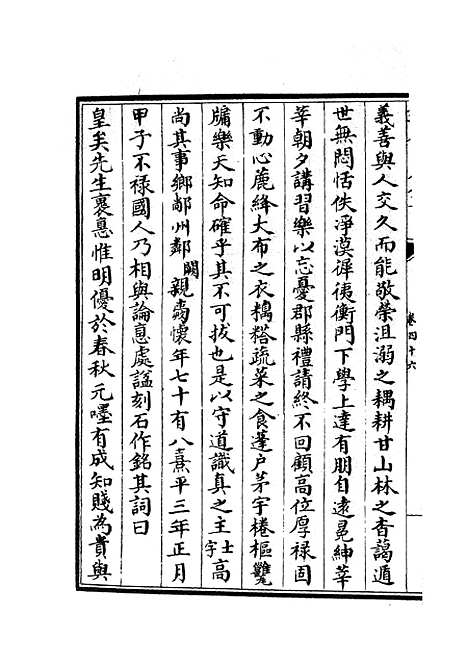 義善與人交久而能敬榮沮溺之耦耕甘山林之杳藹遁
世無悶恬佚淨漠徲㣟衡門下學上達有朋自遠冕紳莘
莘朝夕講習樂以忘憂郡縣禮請終不回顧高位厚禄固
不動心麁絺大布之衣糲糝蔬菜之食蓬户茅宇棬樞甕
牖樂天知命確乎其不可拔也是以守道識真之主士字高
尚其事鄉鄰州鄰闕親㝯懷年七十有八熹平三年正月
甲子不禄國人乃相與論悳處諡刻石作銘其詞曰
皇矣先生襃悳惟明優於春秋元嘿有成知賤為貴與
卷四十六